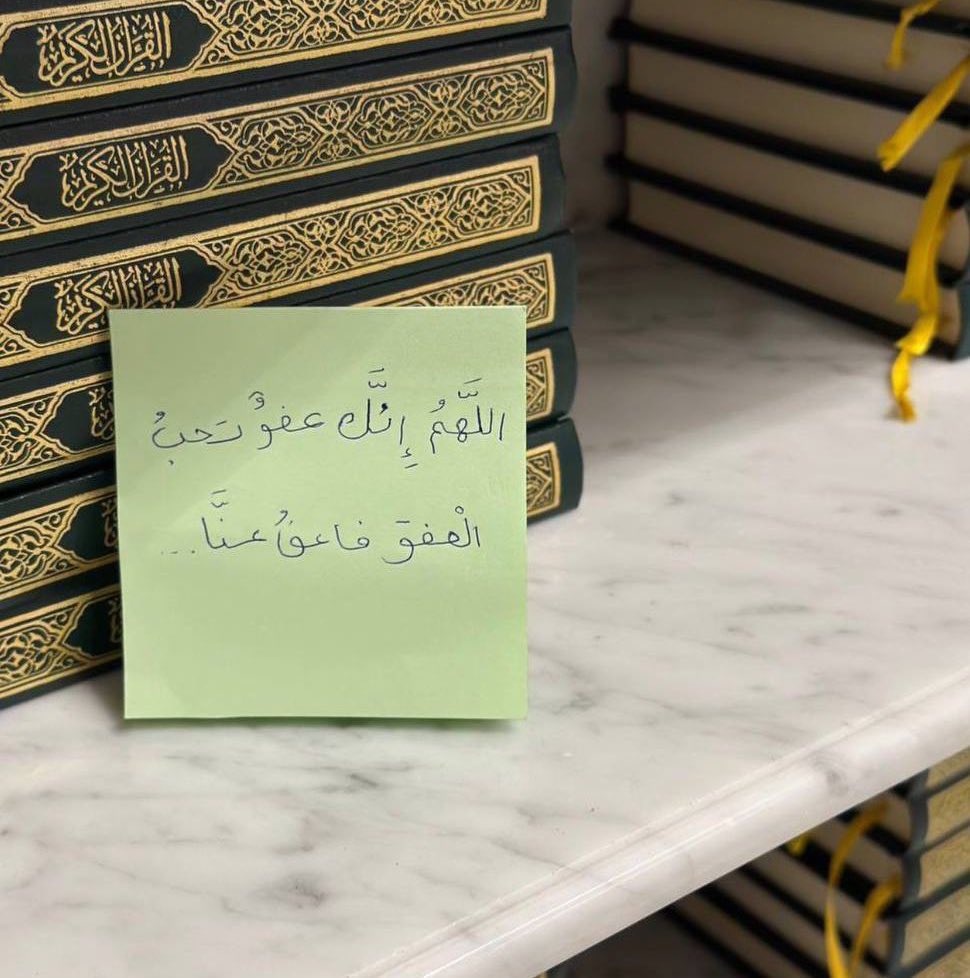 القرآن الكريم
القرآن الكريم
القرآن الكريم
اللَّهُمَّ إِنَّكَ عفوٌ تَحبُ
الْعفوَ فاعفُ عنَّا...